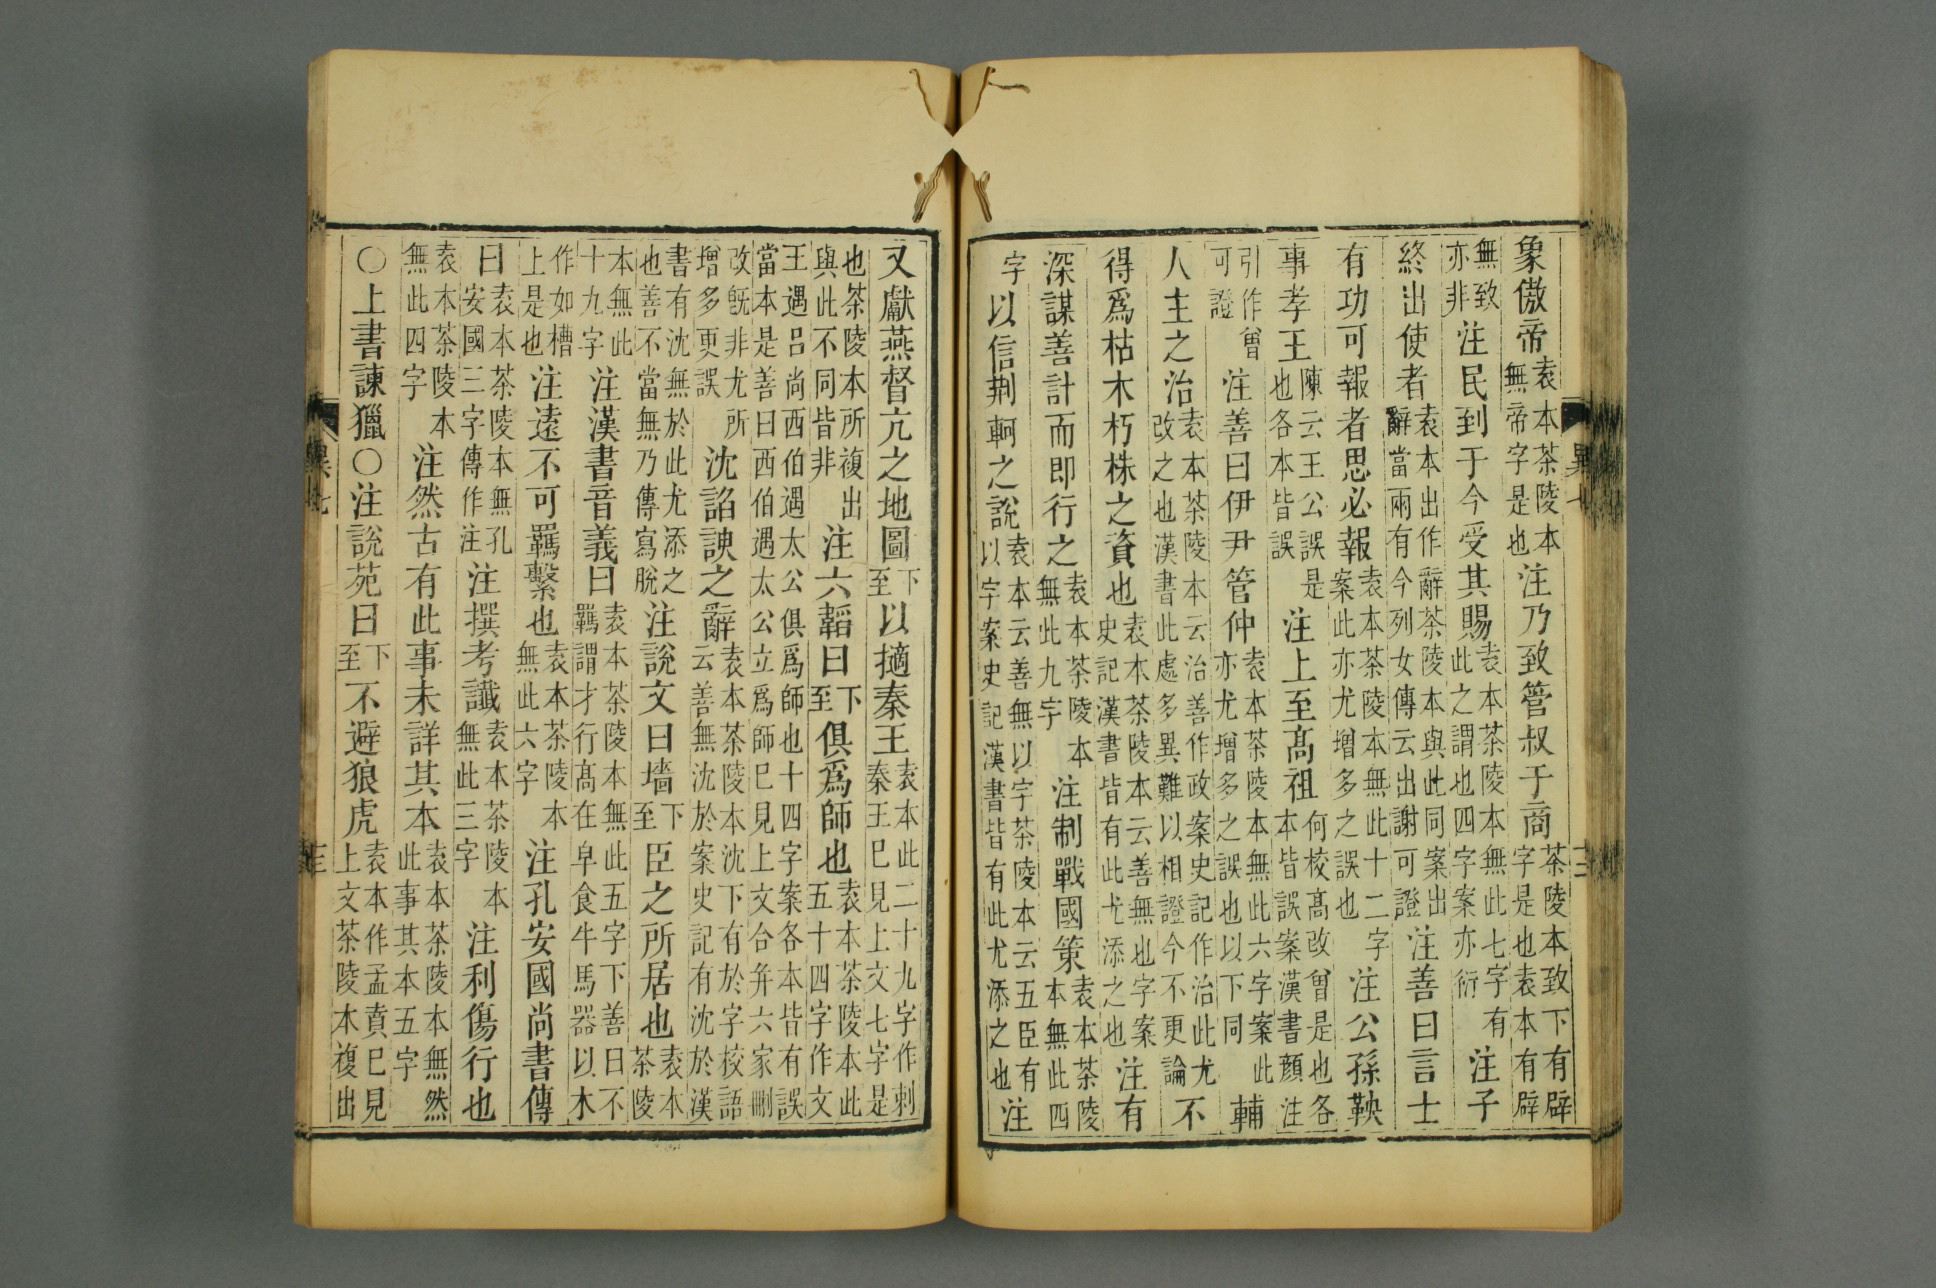 象傲帝袁本茶陵本無帝字是也注乃致管叔于商茶陵本致下有辟字是也袁本有辟
無致亦非注民到于今受其賜袁本茶陵本無此七字有此之謂也四字案亦衍注子
終出使者袁本出作辭茶陵本與此同案出辭當兩有今列女傳云出謝可證注善曰言士
有功可報者思必報袁本茶陵本無此十二字案此亦尤增多之誤也注公孫鞅
事孝王陳云王公誤是也各本皆誤注上至高祖何校高改曾是也各本皆誤案漢書顏注
引作曾可證注善曰伊尹管仲袁本茶陵本無此六字案此亦尤增多之誤也以下同輔
人主之治袁本茶陵本云治善作政案史記作治此尤改之也漢書此處多異難以相證今不更論不
得爲枯木朽株之資也袁本茶陵本云善無也字案史記漢書皆有此尤添之也注有
深謀善計而即行之袁本茶陵本無此九字注制戰國策袁本茶陵本無此四
字以信荆軻之說袁本云善無以字茶陵本云五臣有以字案史記漢書皆有此尤添之也注
又獻燕督亢之地圖下至以擿秦王袁本此二十九字作刺秦王巳見上文七字是
也茶陵本所複出與此不同皆非注六韜曰下至俱爲師也袁本茶陵本此五十四字作文
王遇呂尚西伯遇太公俱爲師也十四字案各本皆有誤當本是善曰西伯遇太公立爲師巳見上文合并六家刪
改旣非尤所增多更誤沈諂諛之辭袁本茶陵本沈下有於字校語云善無沈於案史記有沈於漢
書有沈無於此尤添之也善不當無乃傳寫脫注說文曰墻下至臣之所居也袁本茶陵
本無此十九字注漢書音義曰袁本茶陵本無此五字下善曰不羈謂才行高在皁食牛馬器以木
作如槽上是也注遠不可羈繫也袁本茶陵本無此六字注孔安國尚書傳
曰袁本茶陵本無孔安國三字傳作注注撰考讖袁本茶陵本無此三字注利傷行也
袁本茶陵本無此四字注然古有此事未詳其本袁本茶陵本無然此事其本五字
○上書諫獵○注說苑曰下至不避狼虎袁本作孟賁巳見上文茶陵本複出
異七
三